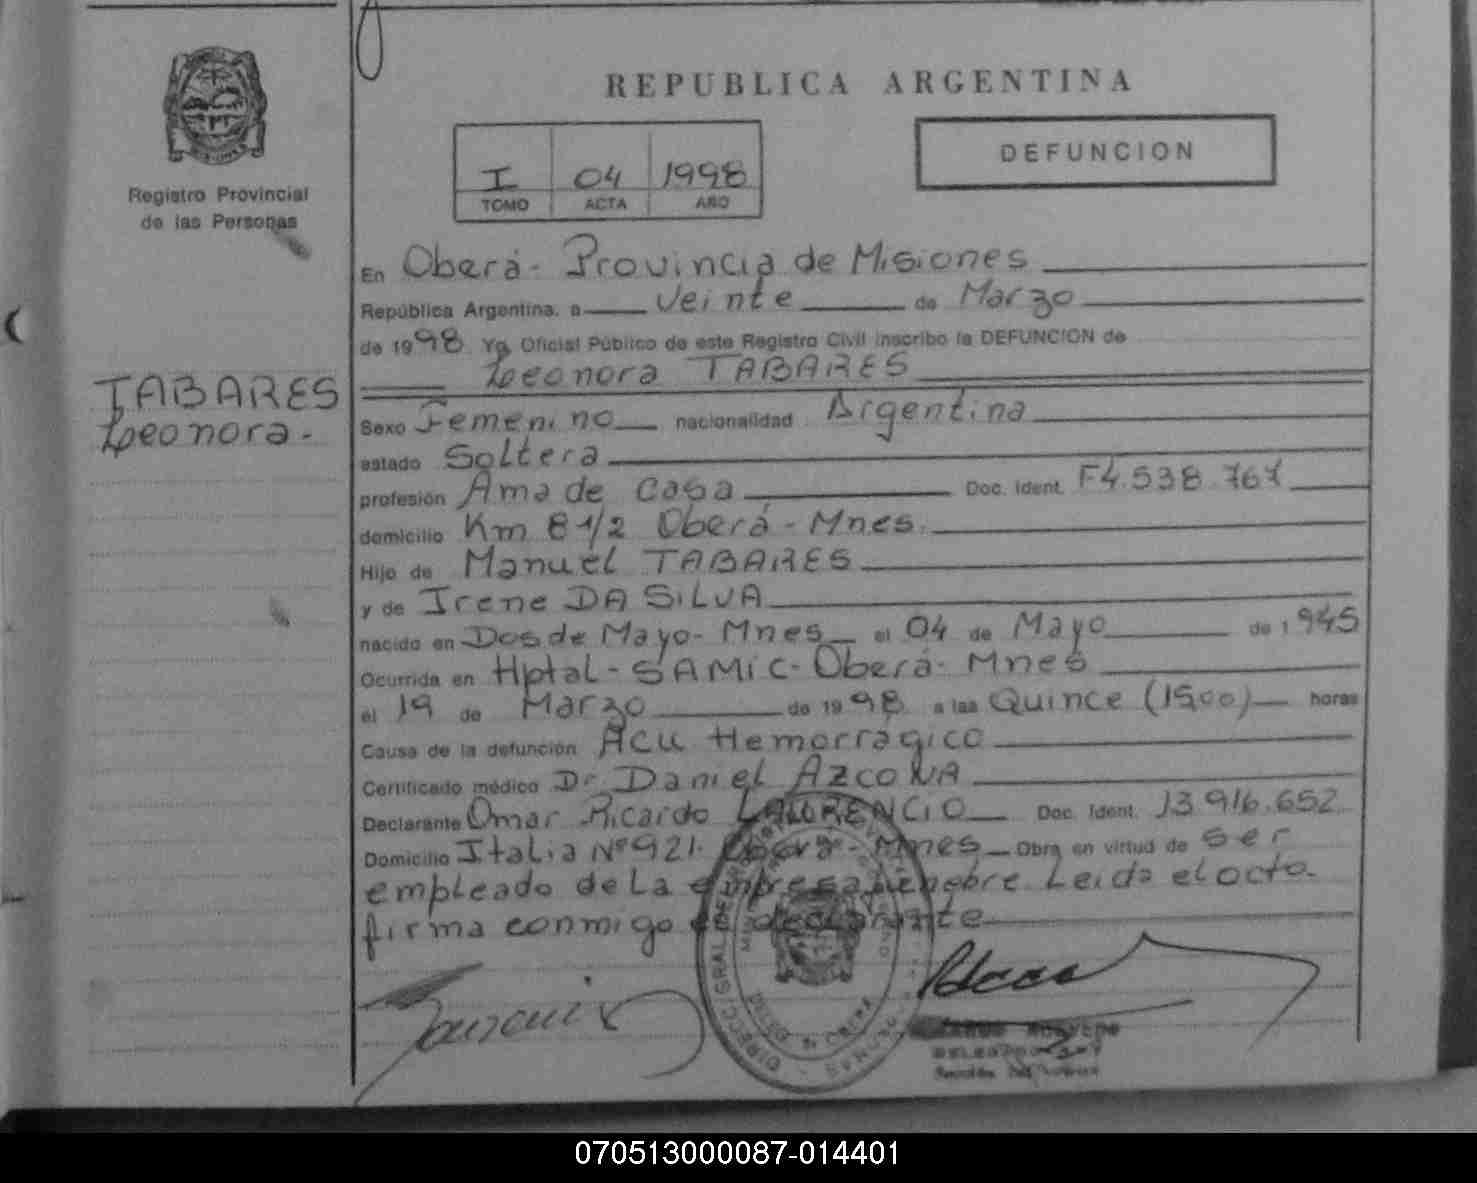 Registro Provincial
de las Personas
TABARES
Leonora.
REPUBLICA ARGENTINA
I 04 1998
TOMO ACTA AÑO
DEFUNCION
En Oberá - Provincia de Misiones
República Argentina, a veinte de Marzo
de 1998 Yo, Oficial Público de este Registro Civil inscribo la DEFUNCION de
Leonora TABARES
Sexo Femenino nacionalidad Argentina
estado Soltera
profesión Ama de Casa Doc. Ident. F4.538.767
domicilio Km 8 1/2 Oberá - Mnes.
Hijo de Manuel TABARES
y de Irene DA SILVA
nacido en Dos de Mayo - Mnes el 04 de Mayo de 1945
Ocurrida en Hptal - SAMIC - Oberá - Mnes
el 19 de Marzo de 1998 a las Quince (1500) horas
Causa de la defunción Acu Hemorrágico
Certificado médico Dr Daniel AZCONA
Declarante Omar Ricardo Doc. Ident. 13.916.652
Domicilio Italia Nº 921. Oberá - Mnes Obra en virtud de Ser
empleado de La empresa fúnebre. Leida el acta.
firma conmigo el declarante
070513000087-014401